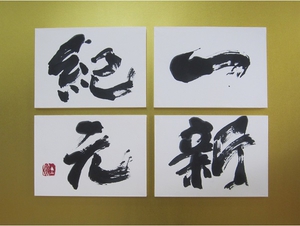 一新
紀元